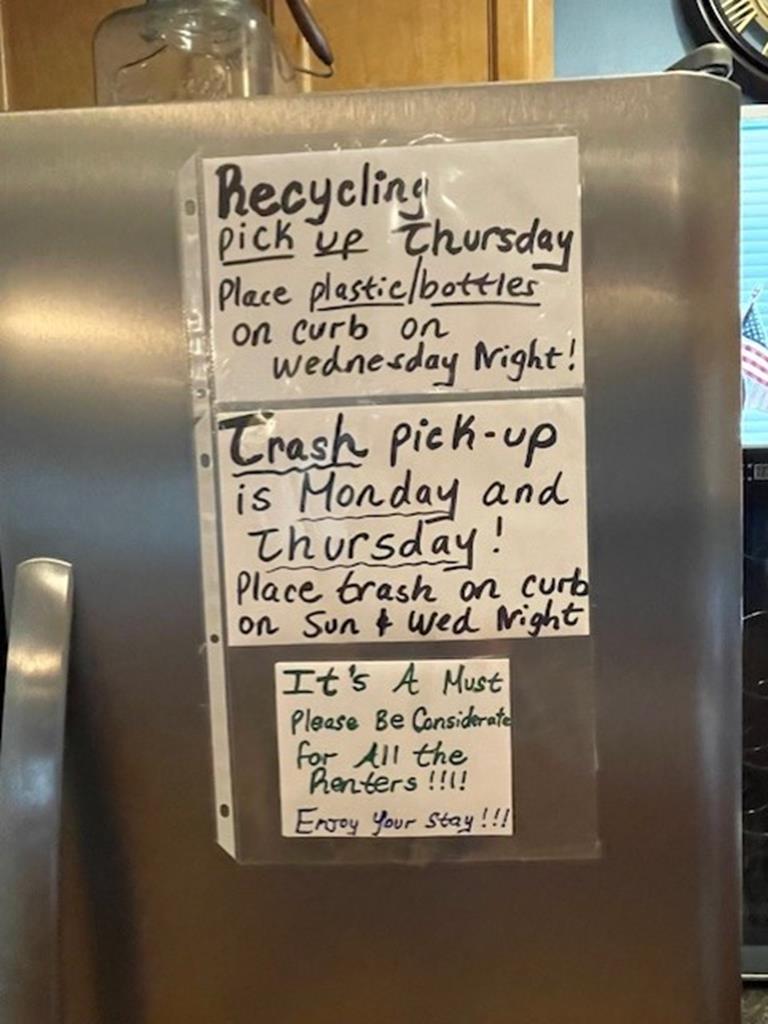 Recycling
pick up Thursday
Place plastic/bottles
on curb on
Wednesday Night!
Trash pick-up
is Monday and
Thursday!
Place trash on curb
on Sun & Wed Night
It's A Must
Please Be Considerate
for All the
Renters !!!!
Enjoy Your Stay!!!